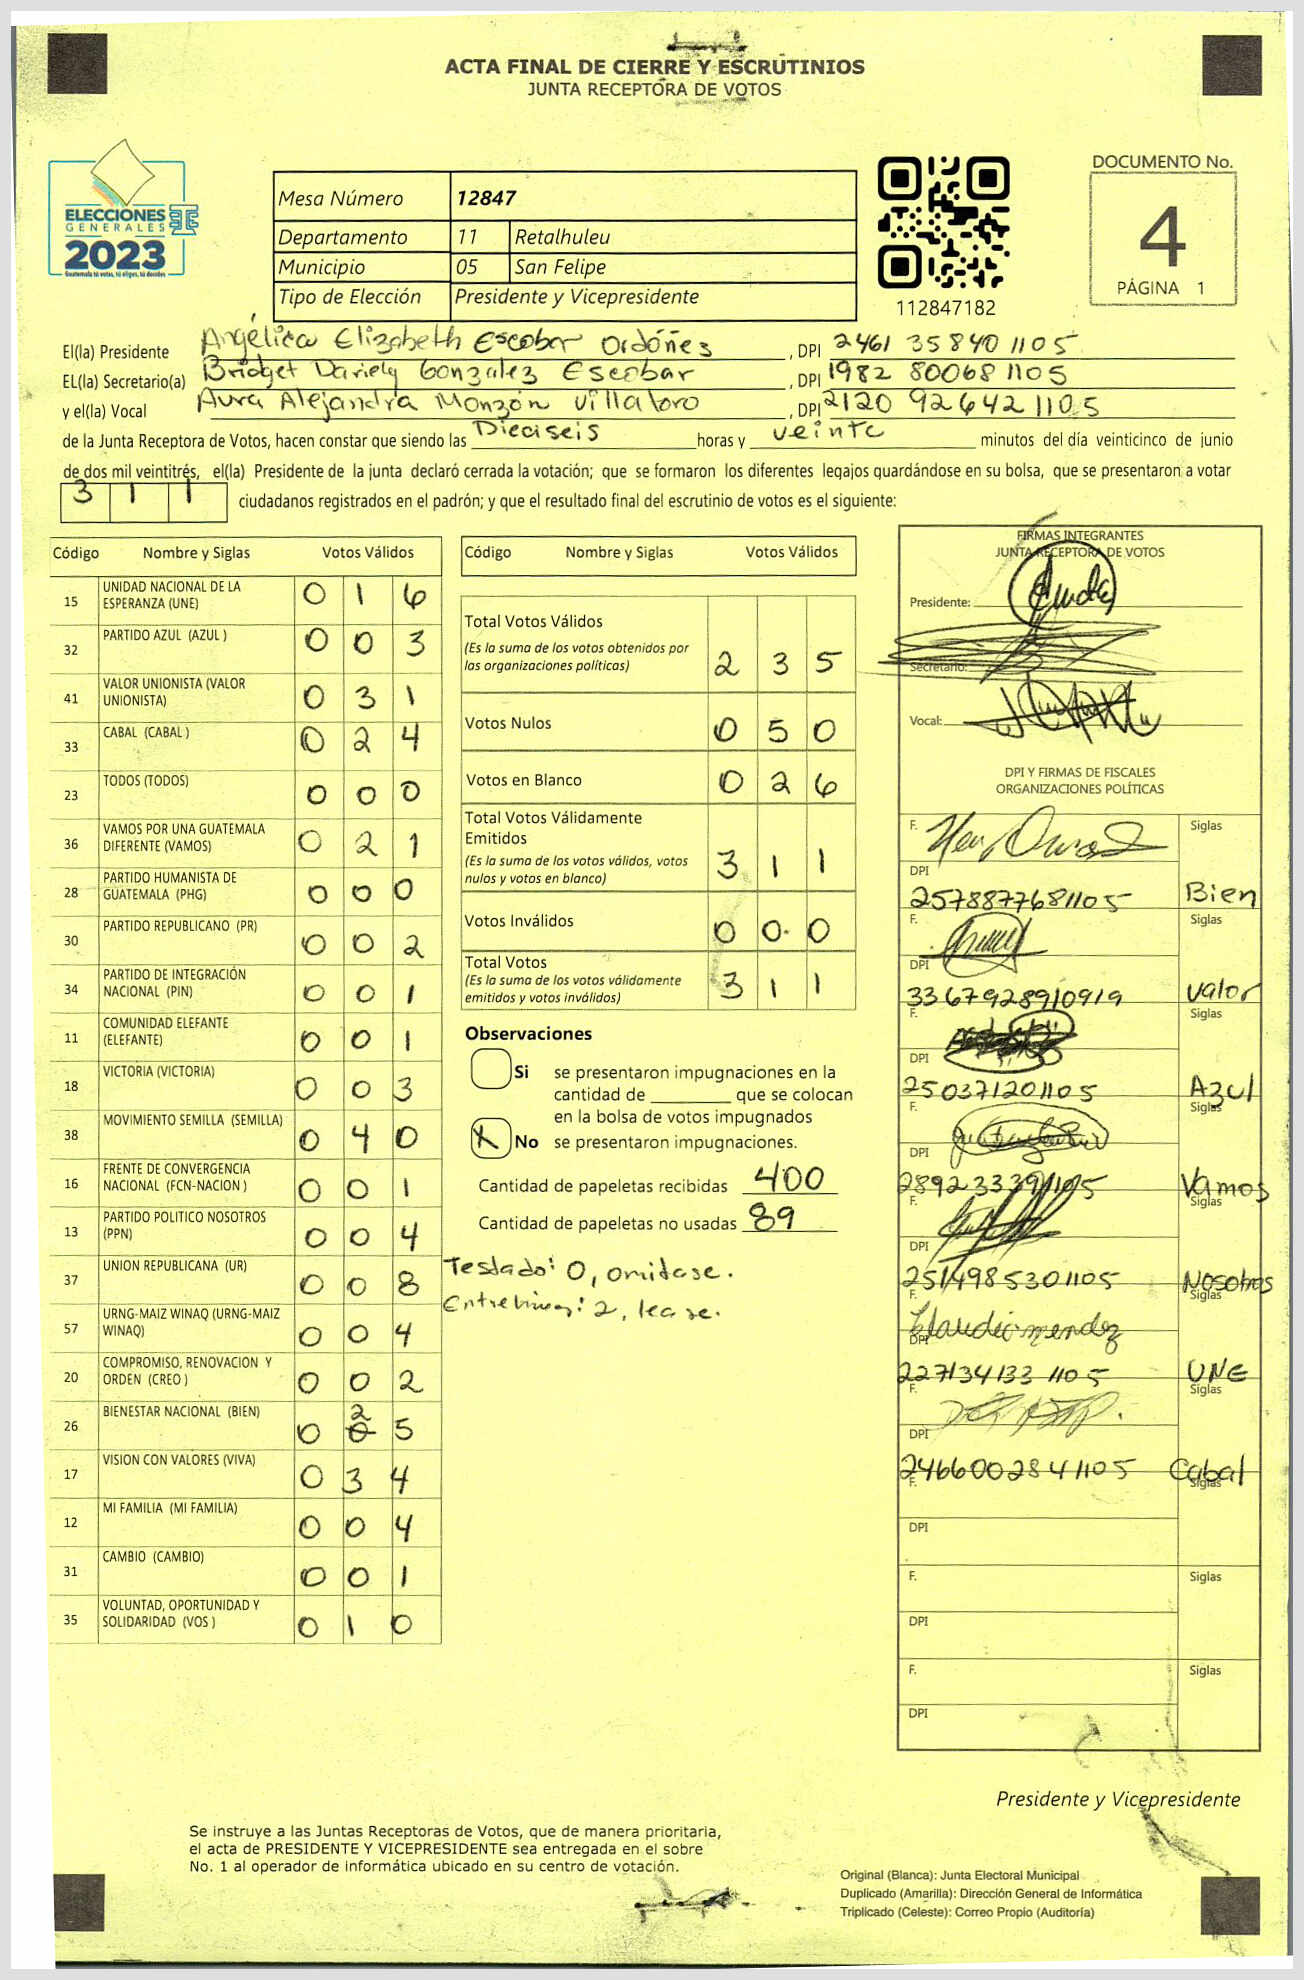 ACTA FINAL DE CIERRE Y ESCRUTINIOS
JUNTA RECEPTORA DE VOTOS
ELECCIONES
GENERALES
2023
Guatemala tú votas, tú eliges, tú decides
Mesa Número 12847
Departamento 11 Retalhuleu
Municipio 05 San Felipe
Tipo de Elección Presidente y Vicepresidente
112847182
DOCUMENTO No.
4
PÁGINA 1
El(la) Presidente Angélica Elizabeth Escobar Ordóñes, DPI 2461 35840 1105
EL(la) Secretario(a) Bridget Dariely Gonzalez Escobar, DPI 1982 80068 1105
y el(la) Vocal Aura Alejandra Monzón Villatoro, DPI 2120 92642 1105
de la Junta Receptora de Votos, hacen constar que siendo las Dieciseis horas y veinte minutos del día veinticinco de junio
de dos mil veintitrés, el(la) Presidente de la junta declaró cerrada la votación; que se formaron los diferentes legajos guardándose en su bolsa, que se presentaron a votar
3 1 1 ciudadanos registrados en el padrón; y que el resultado final del escrutinio de votos es el siguiente:
Código Nombre y Siglas Votos Válidos
15 UNIDAD NACIONAL DE LA ESPERANZA (UNE) 0 1 6
32 PARTIDO AZUL (AZUL ) 0 0 3
41 VALOR UNIONISTA (VALOR UNIONISTA) 0 3 1
33 CABAL (CABAL ) 0 2 4
23 TODOS (TODOS) 0 0 0
36 VAMOS POR UNA GUATEMALA DIFERENTE (VAMOS) 0 2 1
28 PARTIDO HUMANISTA DE GUATEMALA (PHG) 0 0 0
30 PARTIDO REPUBLICANO (PR) 0 0 2
34 PARTIDO DE INTEGRACIÓN NACIONAL (PIN) 0 0 1
11 COMUNIDAD ELEFANTE (ELEFANTE) 0 0 1
18 VICTORIA (VICTORIA) 0 0 3
38 MOVIMIENTO SEMILLA (SEMILLA) 0 4 0
16 FRENTE DE CONVERGENCIA NACIONAL (FCN-NACION ) 0 0 1
13 PARTIDO POLITICO NOSOTROS (PPN) 0 0 4
37 UNION REPUBLICANA (UR) 0 0 8
57 URNG-MAIZ WINAQ (URNG-MAIZ WINAQ) 0 0 4
20 COMPROMISO, RENOVACION Y ORDEN (CREO ) 0 0 2
26 BIENESTAR NACIONAL (BIEN) 0 2 0 5
17 VISION CON VALORES (VIVA) 0 3 4
12 MI FAMILIA (MI FAMILIA) 0 0 4
31 CAMBIO (CAMBIO) 0 0 1
35 VOLUNTAD, OPORTUNIDAD Y SOLIDARIDAD (VOS ) 0 1 0
Código Nombre y Siglas Votos Válidos
Total Votos Válidos
(Es la suma de los votos obtenidos por
las organizaciones políticas) 2 3 5
Votos Nulos 0 5 0
Votos en Blanco 0 2 6
Total Votos Válidamente
Emitidos
(Es la suma de los votos válidos, votos
nulos y votos en blanco) 3 1 1
Votos Inválidos 0 0 0
Total Votos
(Es la suma de los votos válidamente
emitidos y votos inválidos) 3 1 1
Observaciones
Si se presentaron impugnaciones en la
cantidad de ________ que se colocan
en la bolsa de votos impugnados
X No se presentaron impugnaciones.
Cantidad de papeletas recibidas 400
Cantidad de papeletas no usadas 89
Testado: 0, omitase.
Entrelineas: 2, lease.
FIRMAS INTEGRANTES
JUNTA RECEPTORA DE VOTOS
Presidente:
Secretario:
Vocal:
DPI Y FIRMAS DE FISCALES
ORGANIZACIONES POLÍTICAS
F. Siglas
DPI 2578877681105 Bien
F. Siglas
DPI 3367928910919 Valor
F. Siglas
DPI 250371201105 Azul
F. Siglas
DPI 2892333971105 Vamos
F. Siglas
DPI 2514985301105 Nosotros
F. Claudio mendez Siglas
DPI 227134133 1105 UNE
F. Siglas
DPI 2466002841105 Cabal
F. Siglas
DPI
F. Siglas
DPI
F. Siglas
DPI
Presidente y Vicepresidente
Se instruye a las Juntas Receptoras de Votos, que de manera prioritaria,
el acta de PRESIDENTE Y VICEPRESIDENTE sea entregada en el sobre
No. 1 al operador de informática ubicado en su centro de votación.
Original (Blanca): Junta Electoral Municipal
Duplicado (Amarilla): Dirección General de Informática
Triplicado (Celeste): Correo Propio (Auditoría)